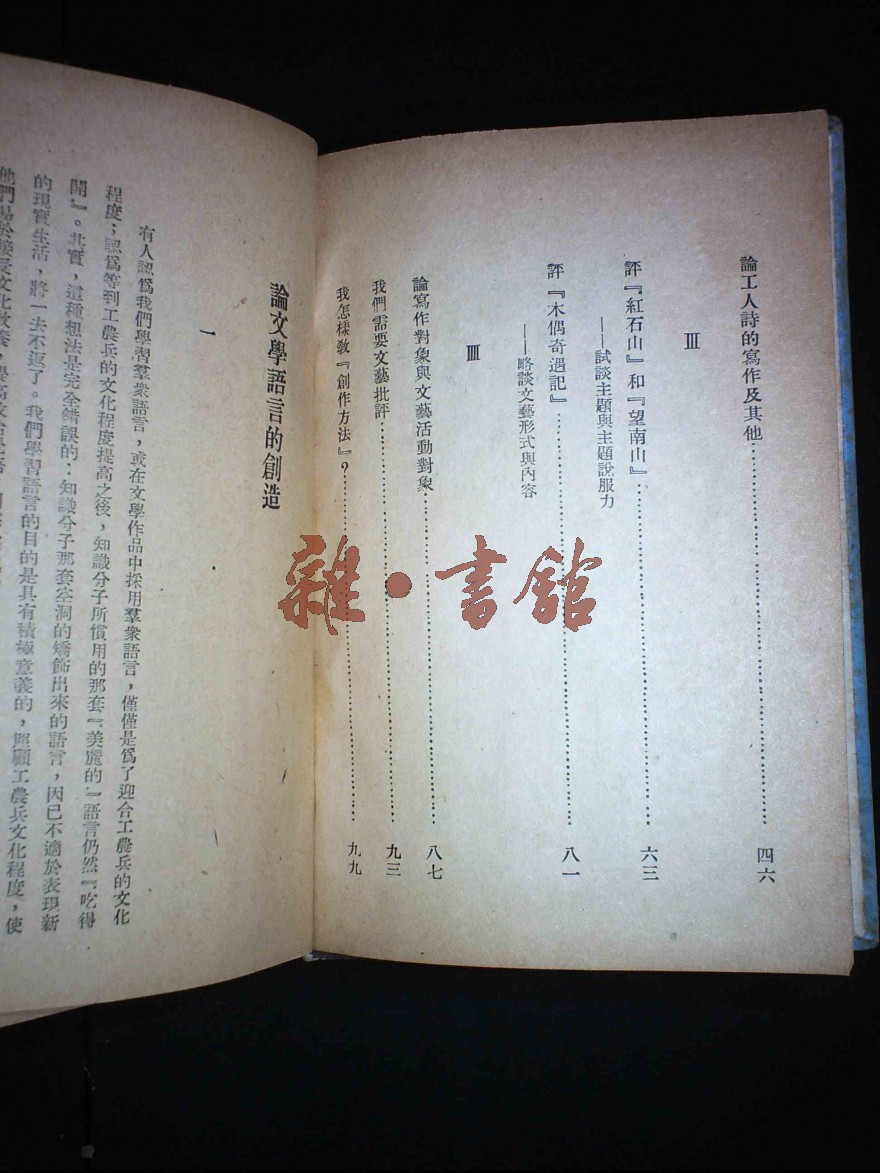 論工人詩的寫作及其他……………………四六
III
評『紅石山』和『望南山』……………………六三
——試談主題與主題說服力
評『木偶奇遇記』……………………八一
——略談文藝形式與內容
IIII
論寫作對象與文藝活動對象……………………八七
我們需要文藝批評……………………九三
我怎樣敎『創作方法』?……………………九九
論文學語言的創造
一
有人認爲我們學習羣衆語言,或在文學作品中採用羣衆語言,僅僅是爲了迎合工農兵的文化
程度;認爲等到工農兵的文化程度提高之後,知識分子所慣用的那套『美麗的』語言仍然『吃得
開』。其實,這種想法是完全錯誤的:知識分子那套空洞的矯飾出來的語言,因已不適於表現新
的現實生活,將一去不返了。我們學習語言的目的是具有積極意義的,照顧工農兵文化程度,使
他們易於接受文化敎養,
雜·書館